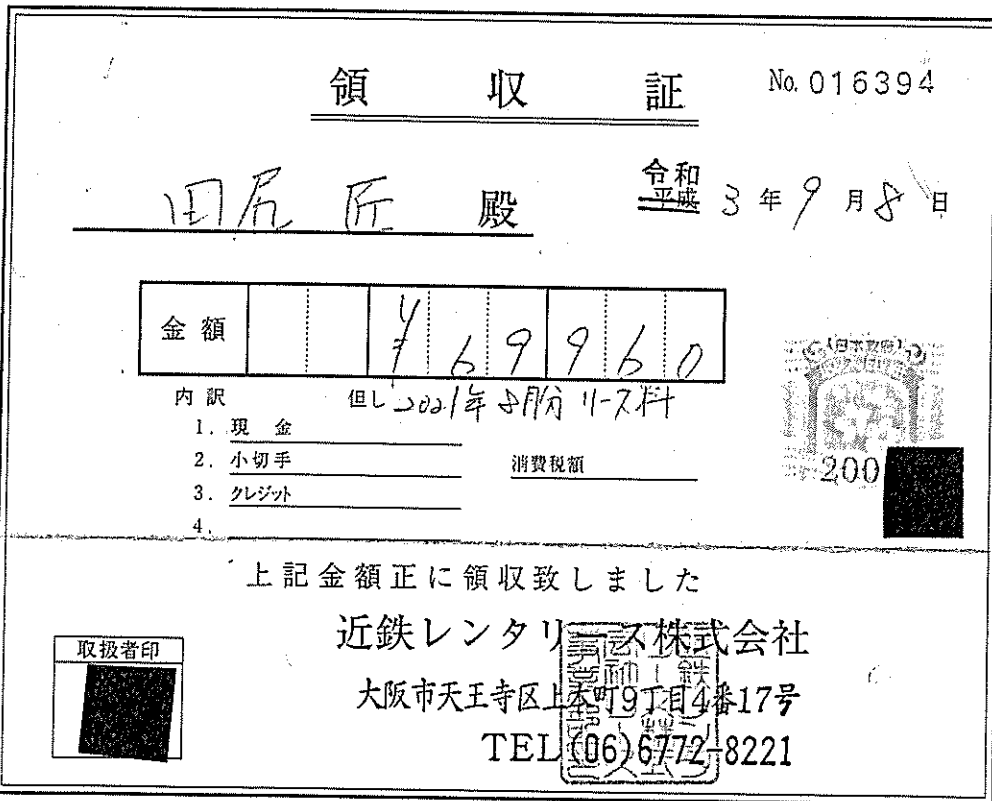 領収証
No. 016394
田尻 匠 殿
令和
平成 3年9月8日
金額 ¥69960
内訳 但し 2021年8月分 リース料
1. 現金
2. 小切手 消費税額
3. クレジット
4.
日本政府
200
上記金額正に領収致しました
近鉄レンタリース株式会社
大阪市天王寺区上本町9丁目4番17号
TEL(06)6772-8221
取扱者印